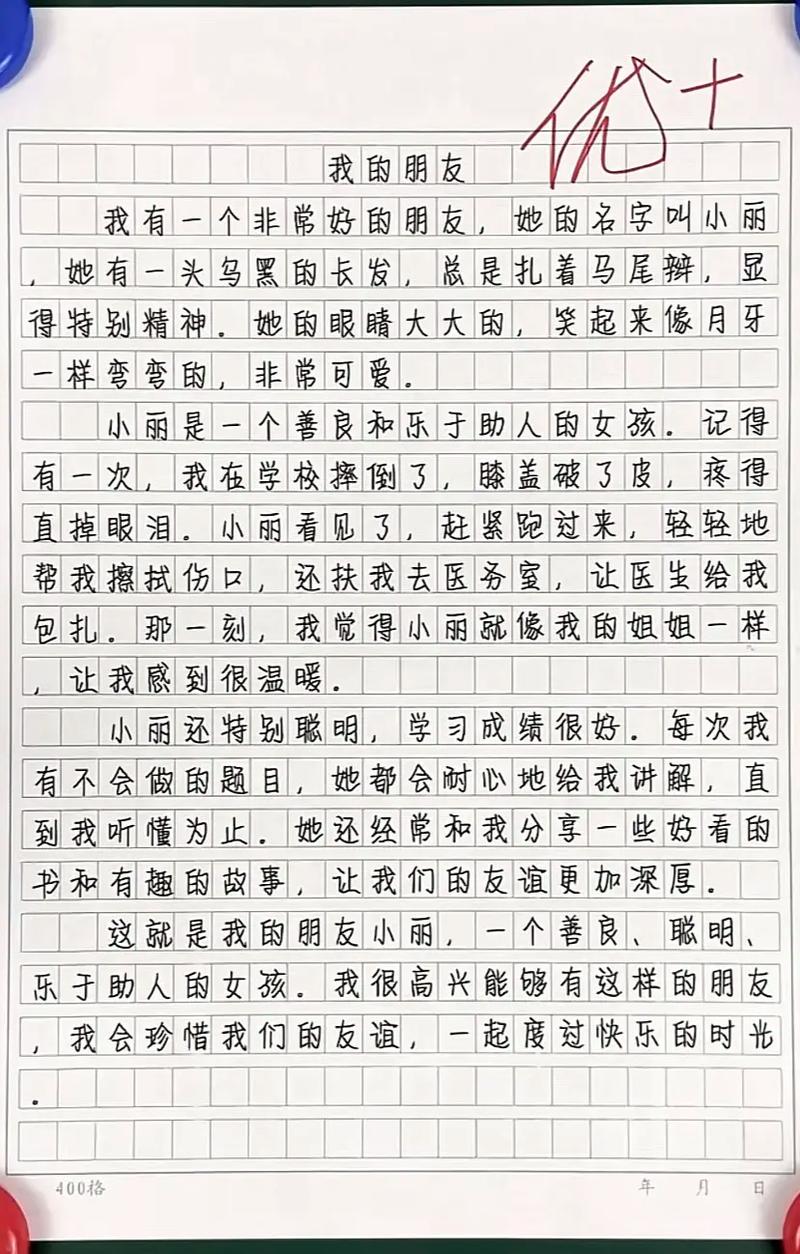 优+
我的朋友
我有一个非常好的朋友，她的名字叫小丽
，她有一头乌黑的长发，总是扎着马尾辫，显
得特别精神。她的眼睛大大的，笑起来像月牙
一样弯弯的，非常可爱。
小丽是一个善良和乐于助人的女孩。记得
有一次，我在学校摔倒了，膝盖破了皮，疼得
直掉眼泪。小丽看见了，赶紧跑过来，轻轻地
帮我擦拭伤口，还扶我去医务室，让医生给我
包扎。那一刻，我觉得小丽就像我的姐姐一样
，让我感到很温暖。
小丽还特别聪明，学习成绩很好。每次我
有不会做的题目，她都会耐心地给我讲解，直
到我听懂为止。她还经常和我分享一些好看的
书和有趣的故事，让我们的友谊更加深厚。
这就是我的朋友小丽，一个善良、聪明、
乐于助人的女孩。我很高兴能够有这样的朋友
，我会珍惜我们的友谊，一起度过快乐的时光
。
400格 年 月 日